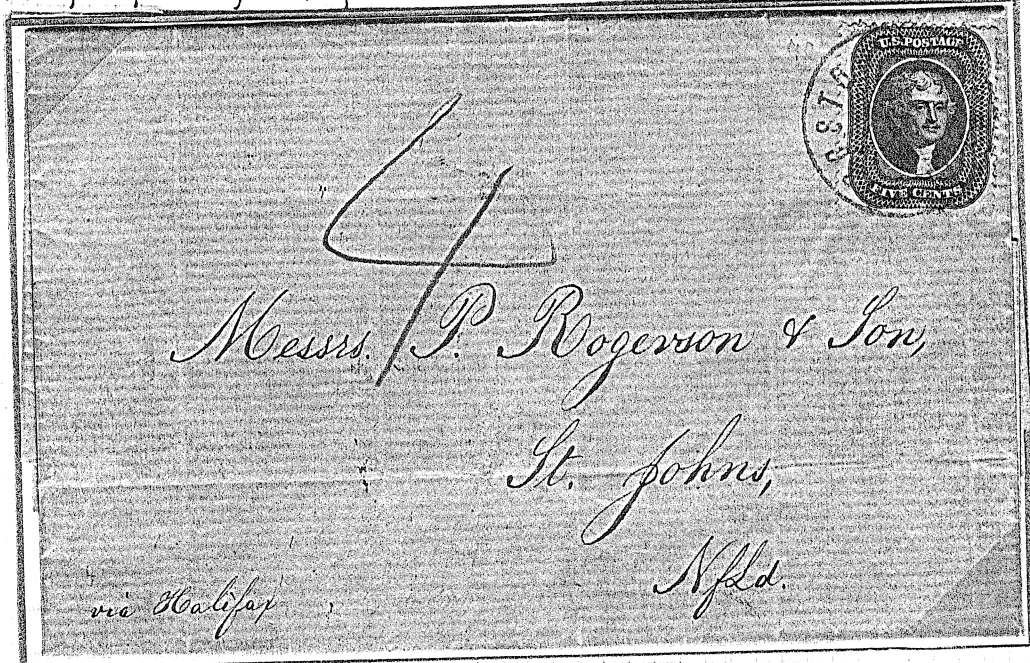 U.S. POSTAGE
FIVE CENTS
4
Messrs. P. Rogerson & Son,
St. Johns,
Nfld.
via Halifax